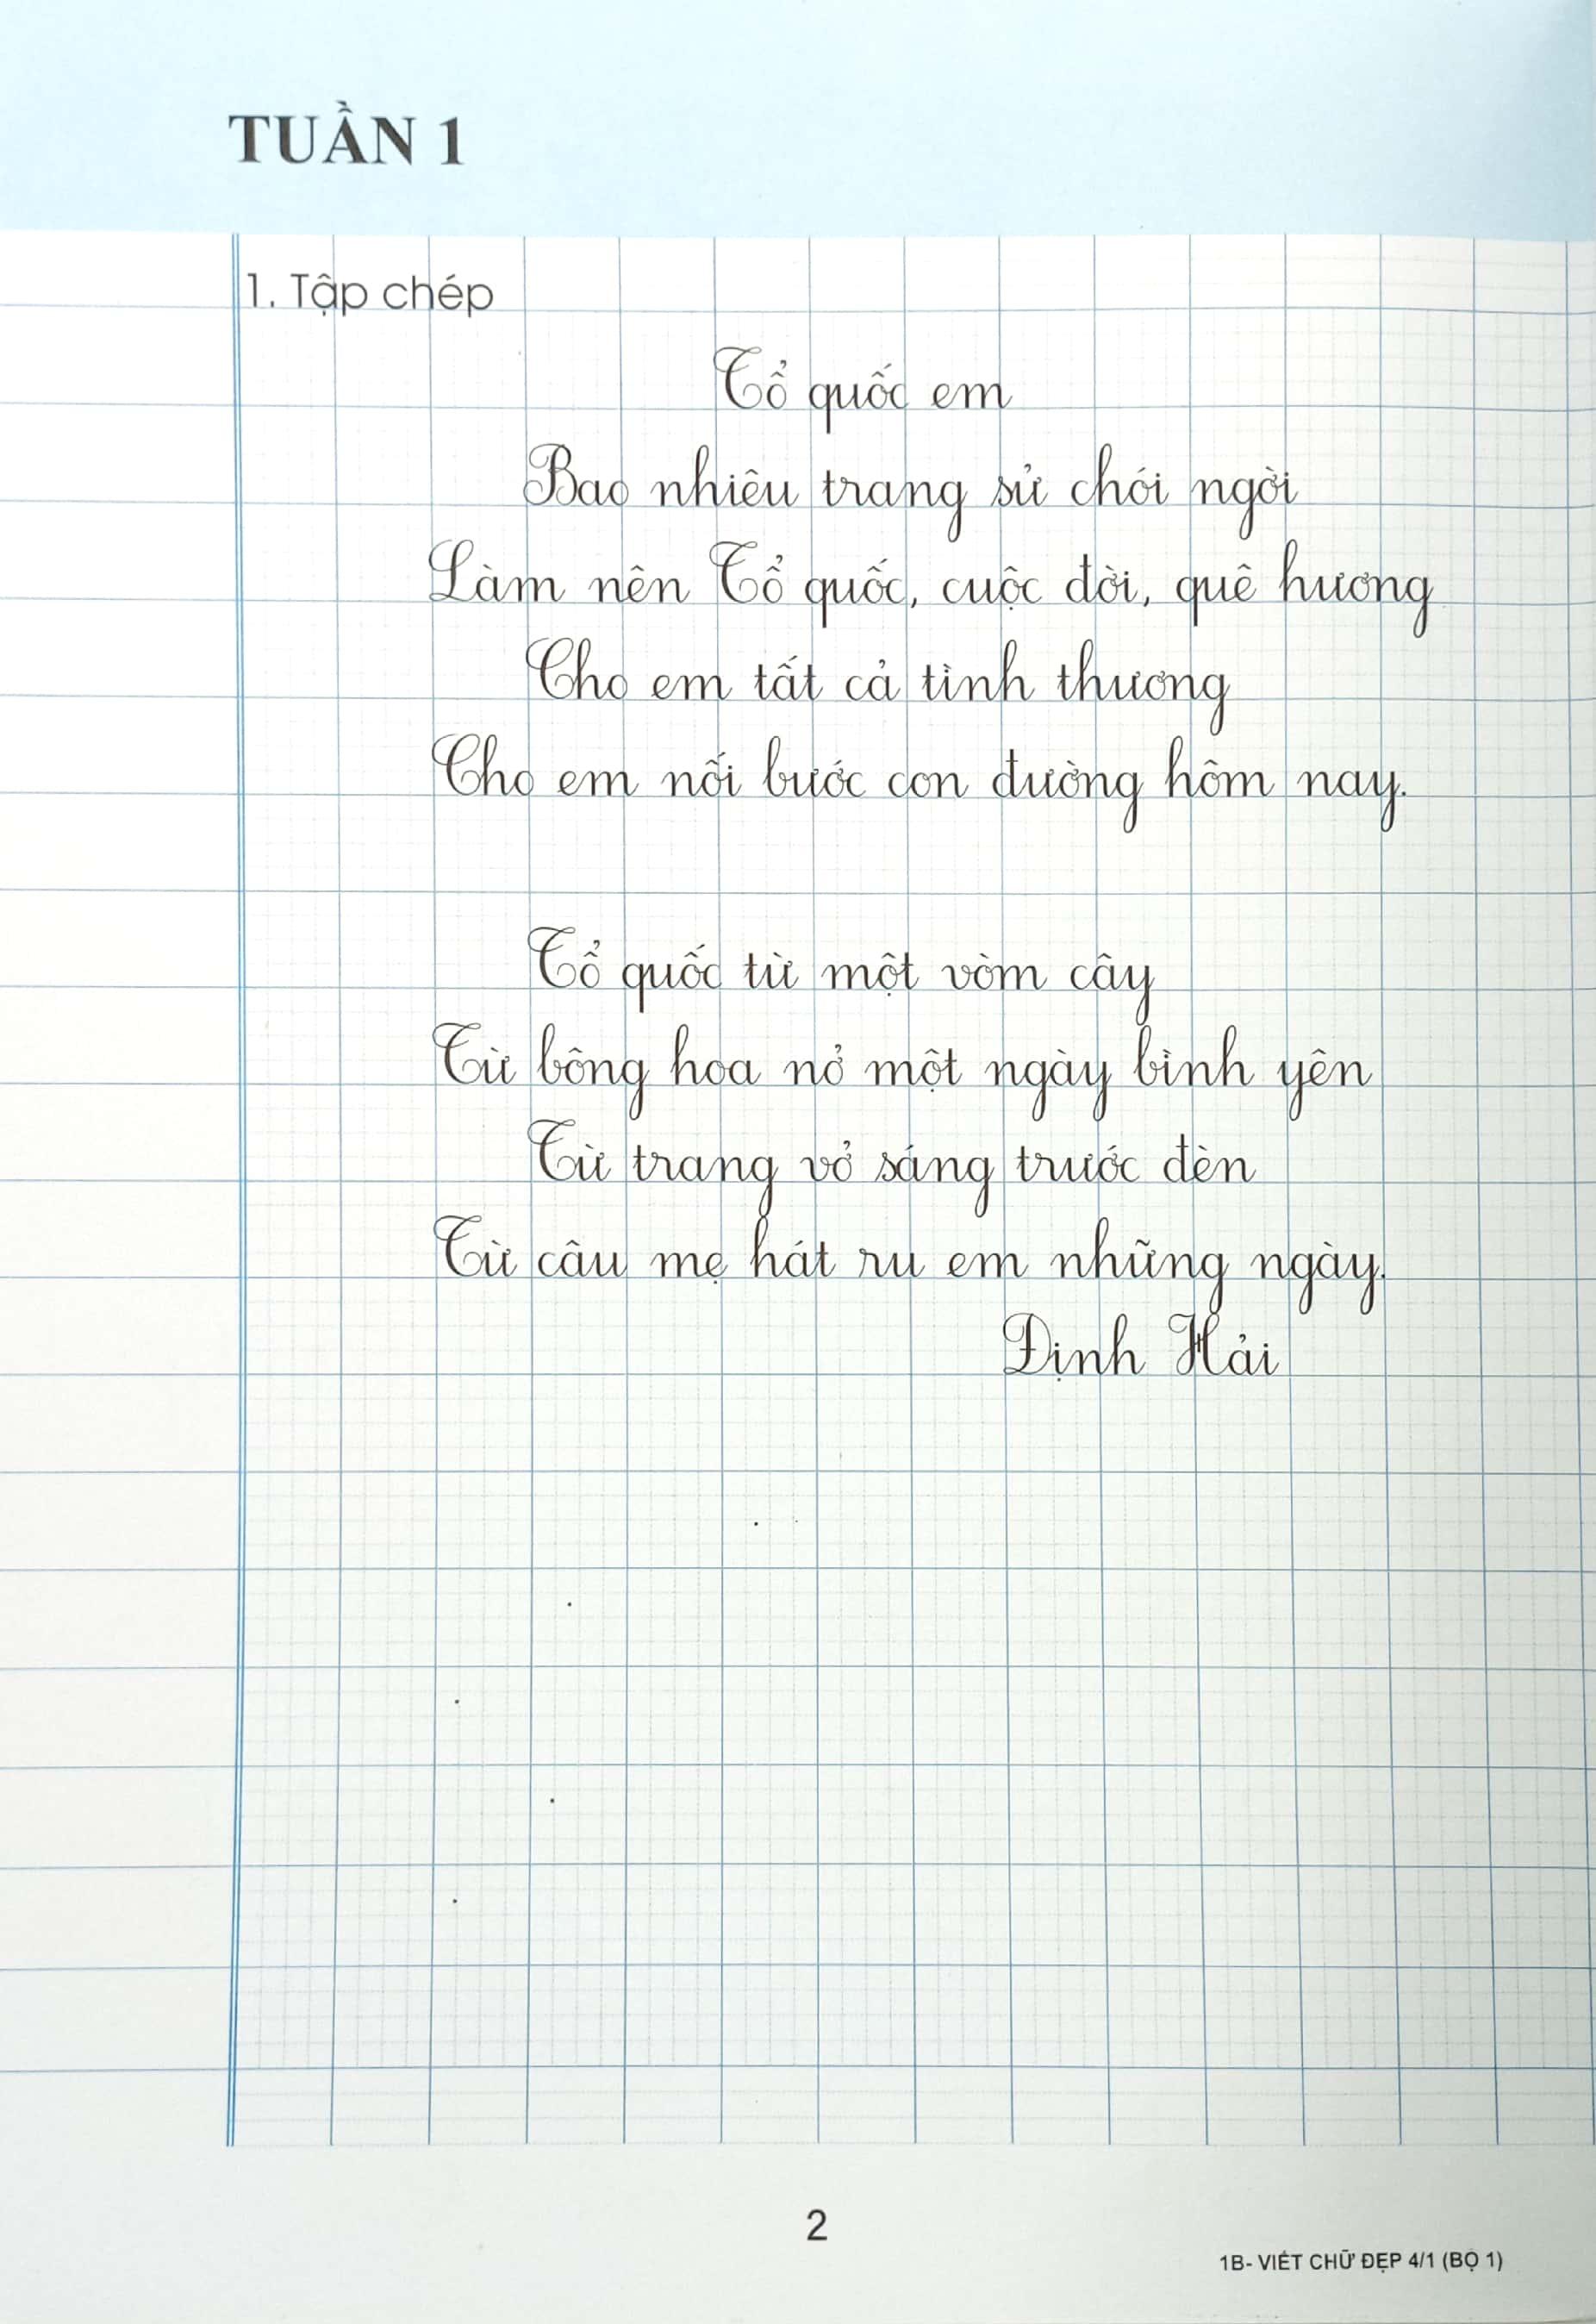 TUẦN 1
1. Tập chép
Tổ quốc em
Bao nhiêu trang sử chói ngời
Làm nên Tổ quốc, cuộc đời, quê hương
Cho em tất cả tình thương
Cho em nối bước con đường hôm nay.
Tổ quốc từ một vòm cây
Từ bông hoa nở một ngày bình yên
Từ trang vở sáng trước đèn
Từ câu mẹ hát ru em những ngày.
Định Hải
2
1B- VIẾT CHỮ ĐẸP 4/1 (BỘ 1)